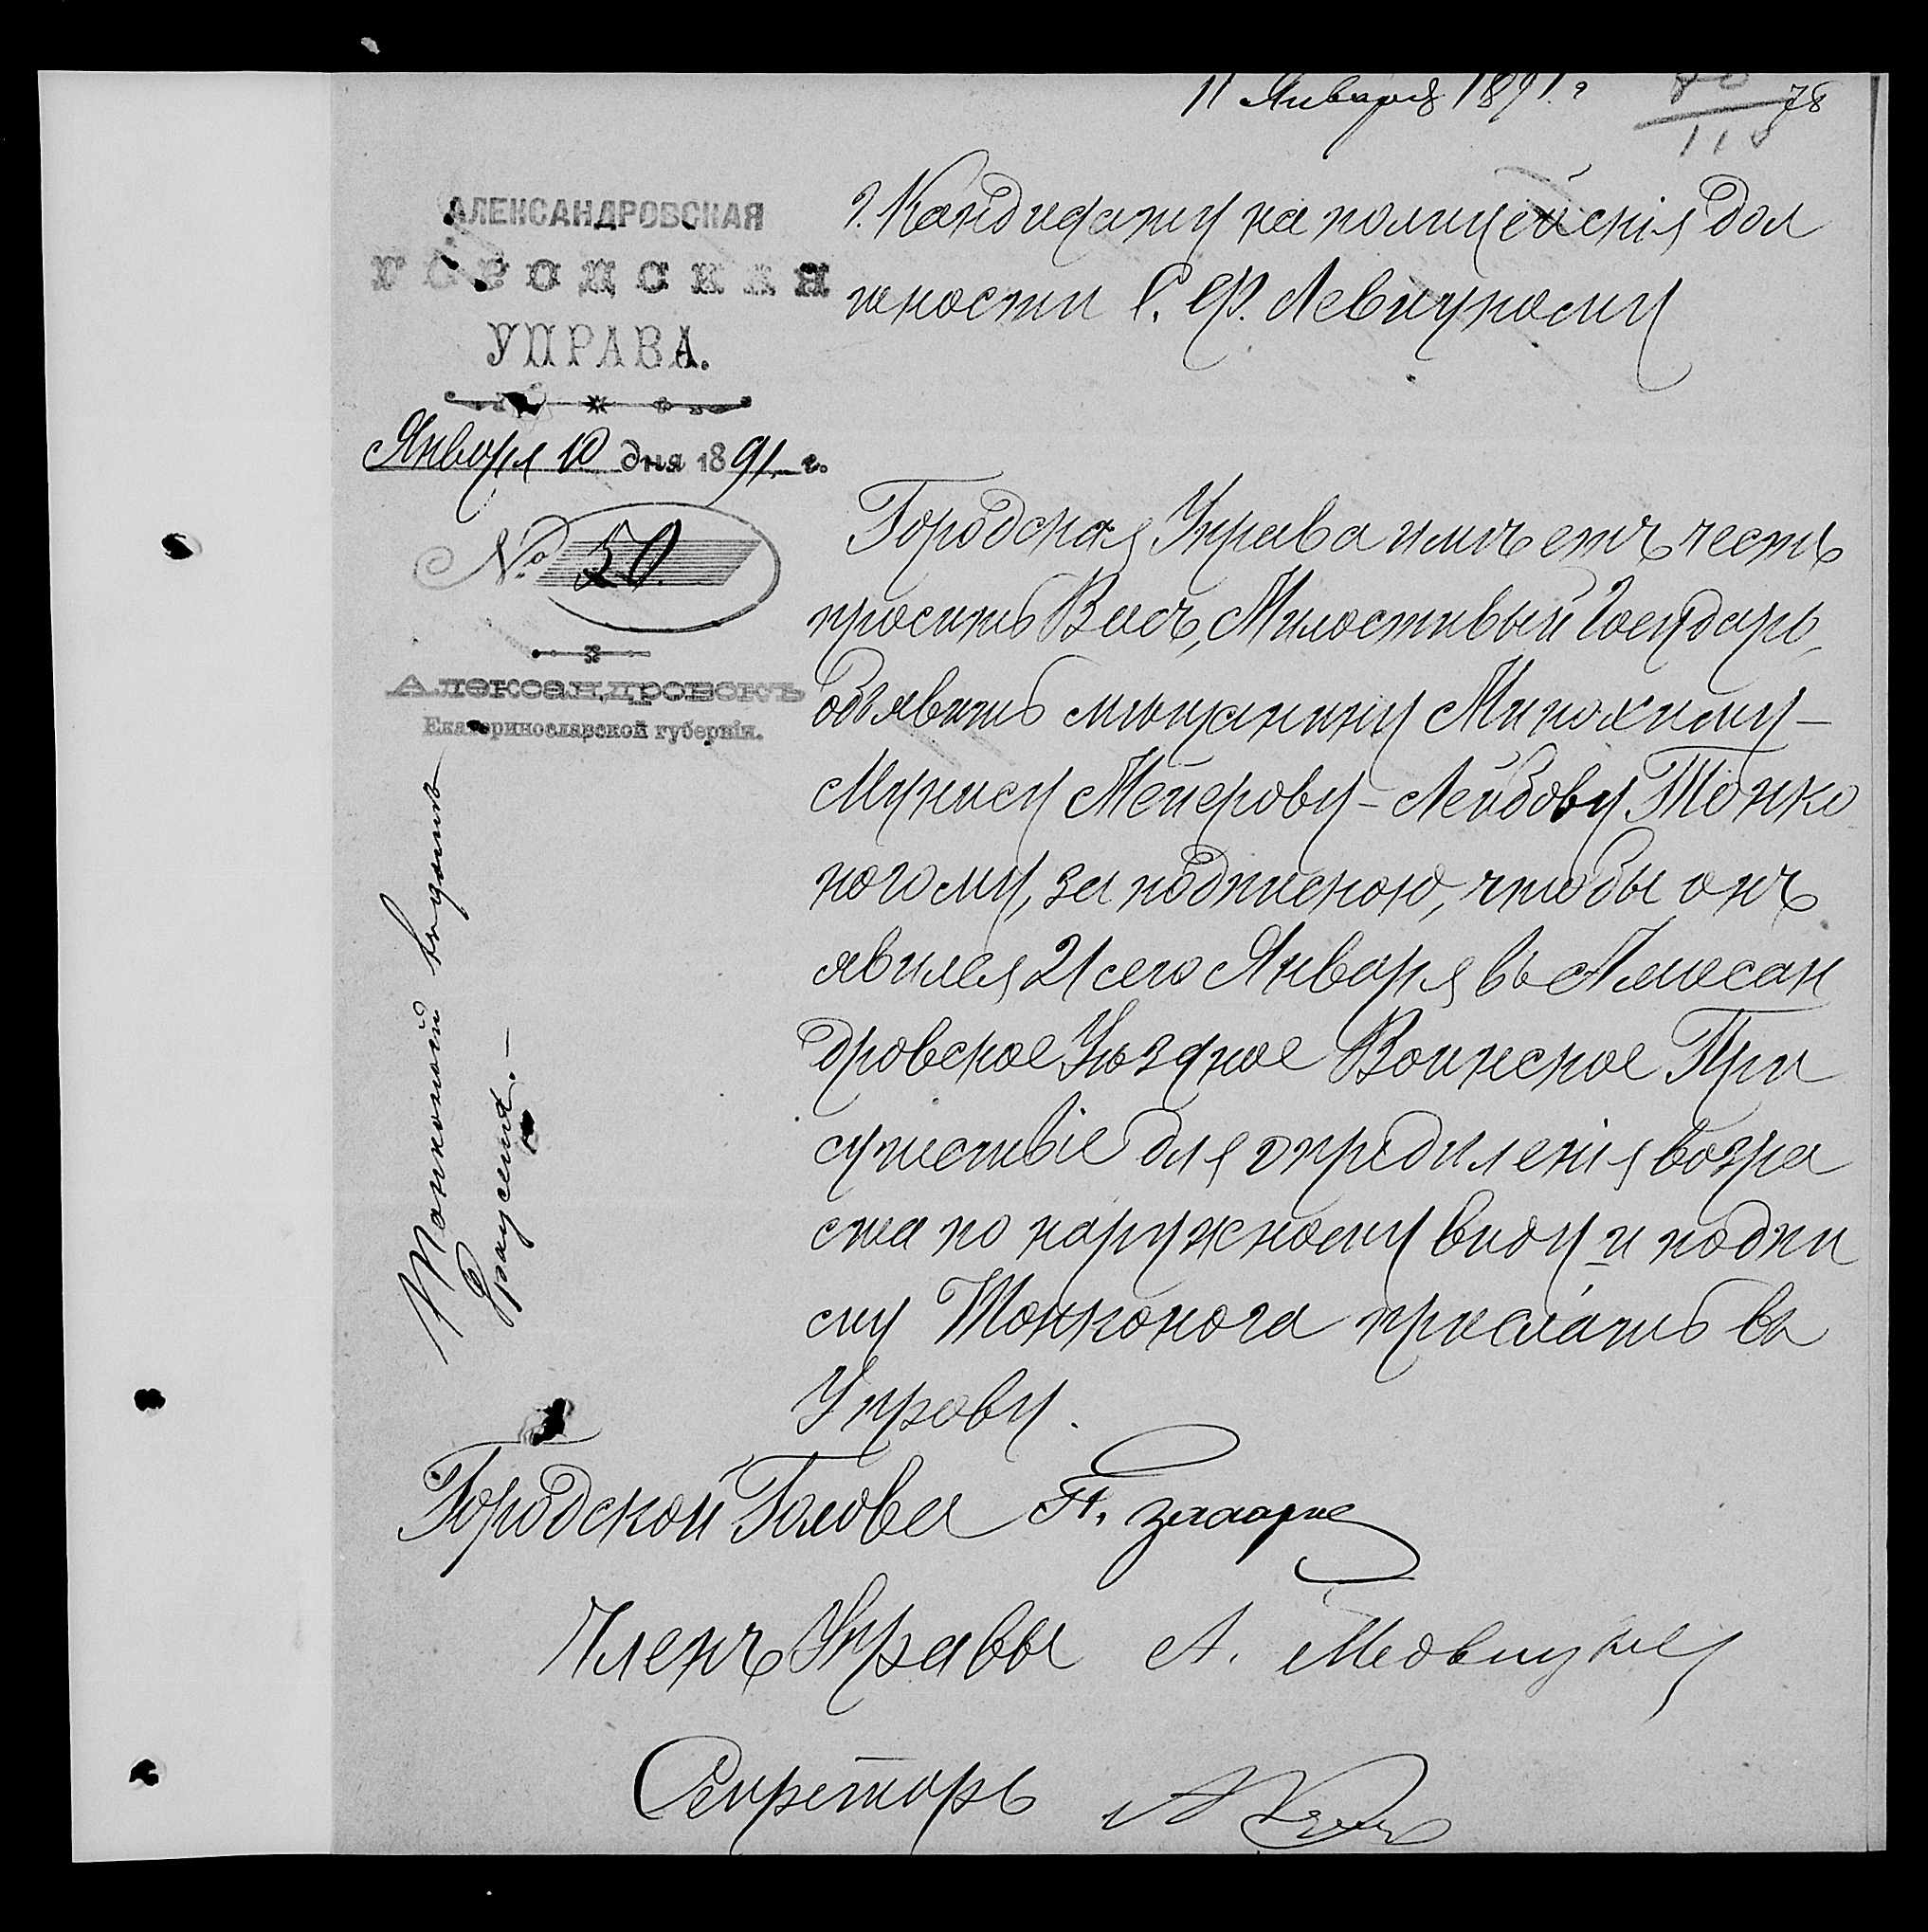 11 Января 1891 г.
78
АЛЕКСАНДРОВСКАЯ
ГОРОДСКАЯ
УПРАВА.
Января 10 дня 1891 г.
№ 50.
Александровскъ
Екатеринославской губерніи.
г. Кандидату на полицейскія дол
жности С. Ф. Левицкому
Городская Управа имѣетъ честь
просить Васъ, Милостивый Государь,
объявить мѣщанину
Мунису Мейерову-Лейбову Тонко
ногому, за подпискою, чтобы онъ
явился 21 сего Января въ Алексан
дровское Уѣздное Воинское При
сутствіе для опредѣленія возра
ста по наружному виду и подпи
ску Тонконога прислать въ
Управу.
Тонконогий
Городской Голова
Членъ Управы А.
Секретарь